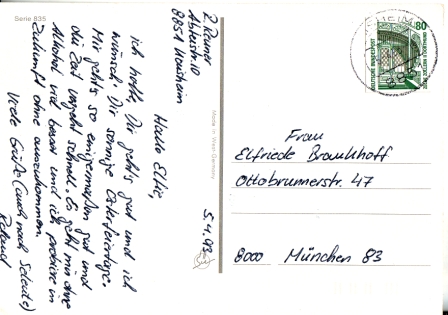 Serie 835
Z. Reiner
Abteistr. 10
8851 Monheim
5.4.93
Hallo Elfie,
ich hoffe, Dir geht's gut und ich
wünsch' Dir sonnige Osterfeiertage.
Mir geht's so einigermaßen gut und
die Zeit vergeht schnell. Es geht mir ohne
Alkohol viel besser und ich probiere in
Zukunft ohne auszukommen.
Viele Grüße (auch nach
Made in West-Germany
80
DEUTSCHE BUNDESPOST
Frau
Elfriede Braukhoff
Ottobrunnerstr. 47
8000 München 83